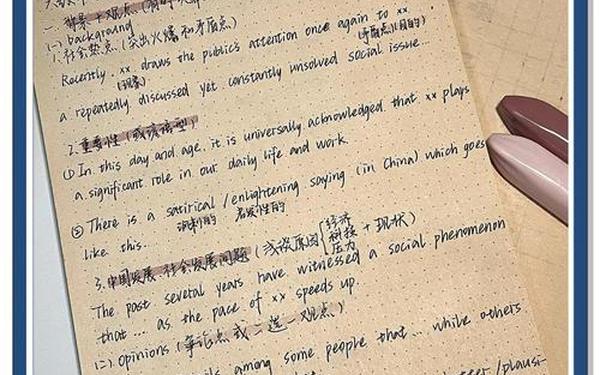 一、背景+观点
(一) background
1.社会热点(突出火爆和矛盾点)
Recently, xx draws the public's attention once again to xx
(现象) (矛盾点/目的)
a repeatedly discussed yet constantly unsolved social issue...
2.重要性(或流行型)
① In this day and age, it is universally acknowledged that xx plays
a significant role in our daily life and work.
② There is a satirical/enlightening saying (in China) which goes
讽刺的 启发性的
like this...
3.中国发展、社会发展问题(或谈原因[经济 科技 压力 + 现状)
The past several years have witnessed a social phenomenon
that... as the pace of xx speeds up.
(二) opinions (争论点或二选一观点)
among some people that... while others
plausi-